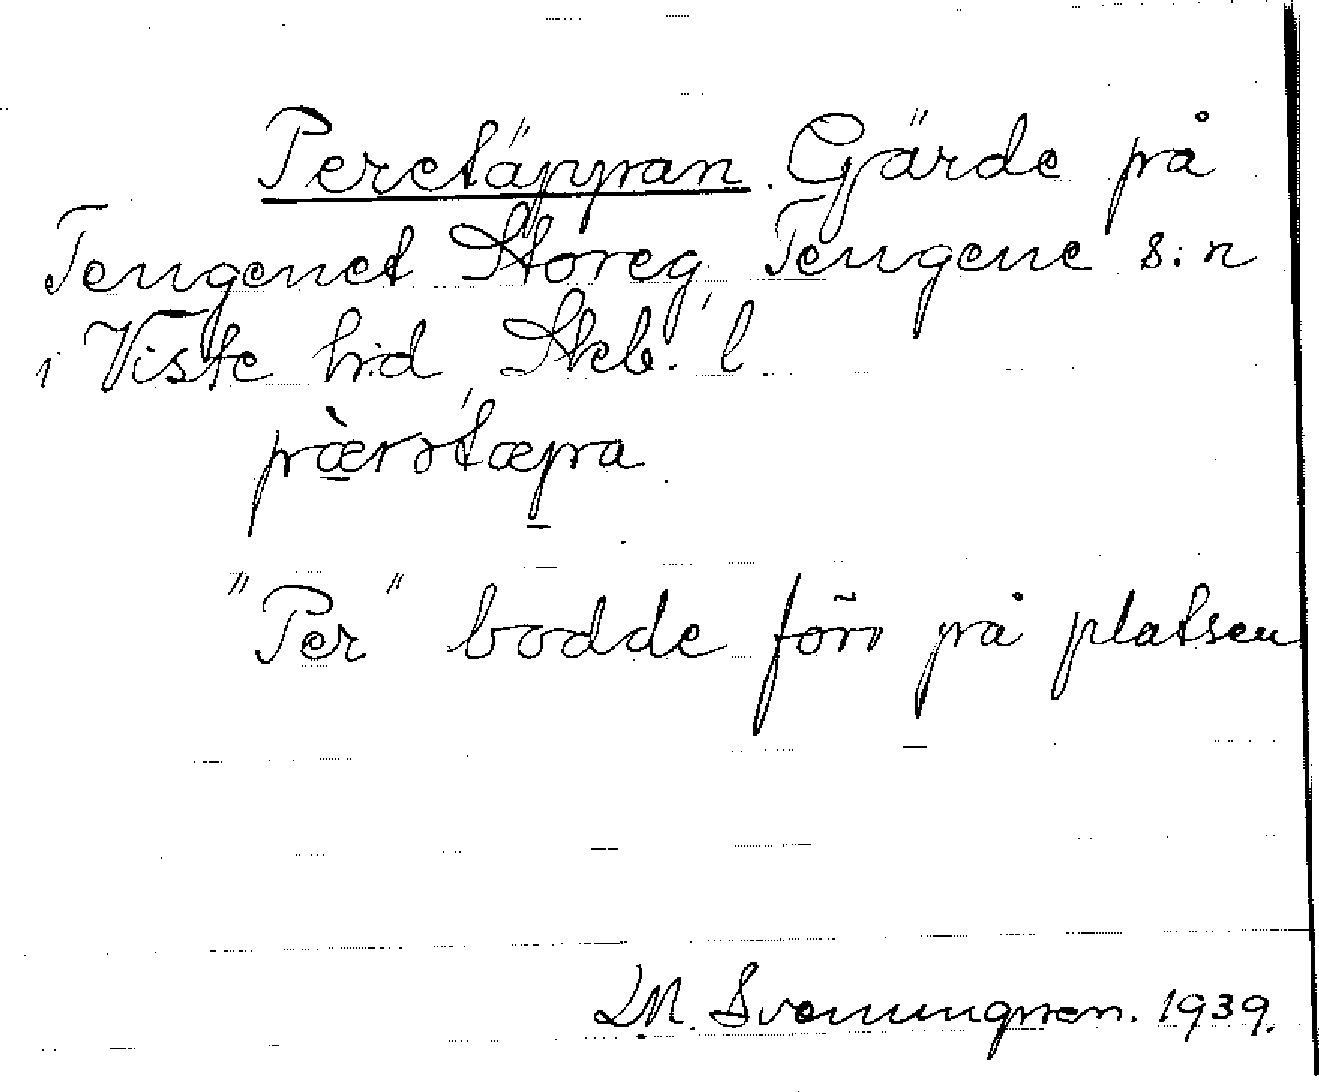 Peretäppan. Gärde på
Tengenet Storeg. Tengene s:n
i Viste hd, Skb. l.
pæ̀rətæpa.
"Per" bodde förr på platsen
Svenningsson. 1939.